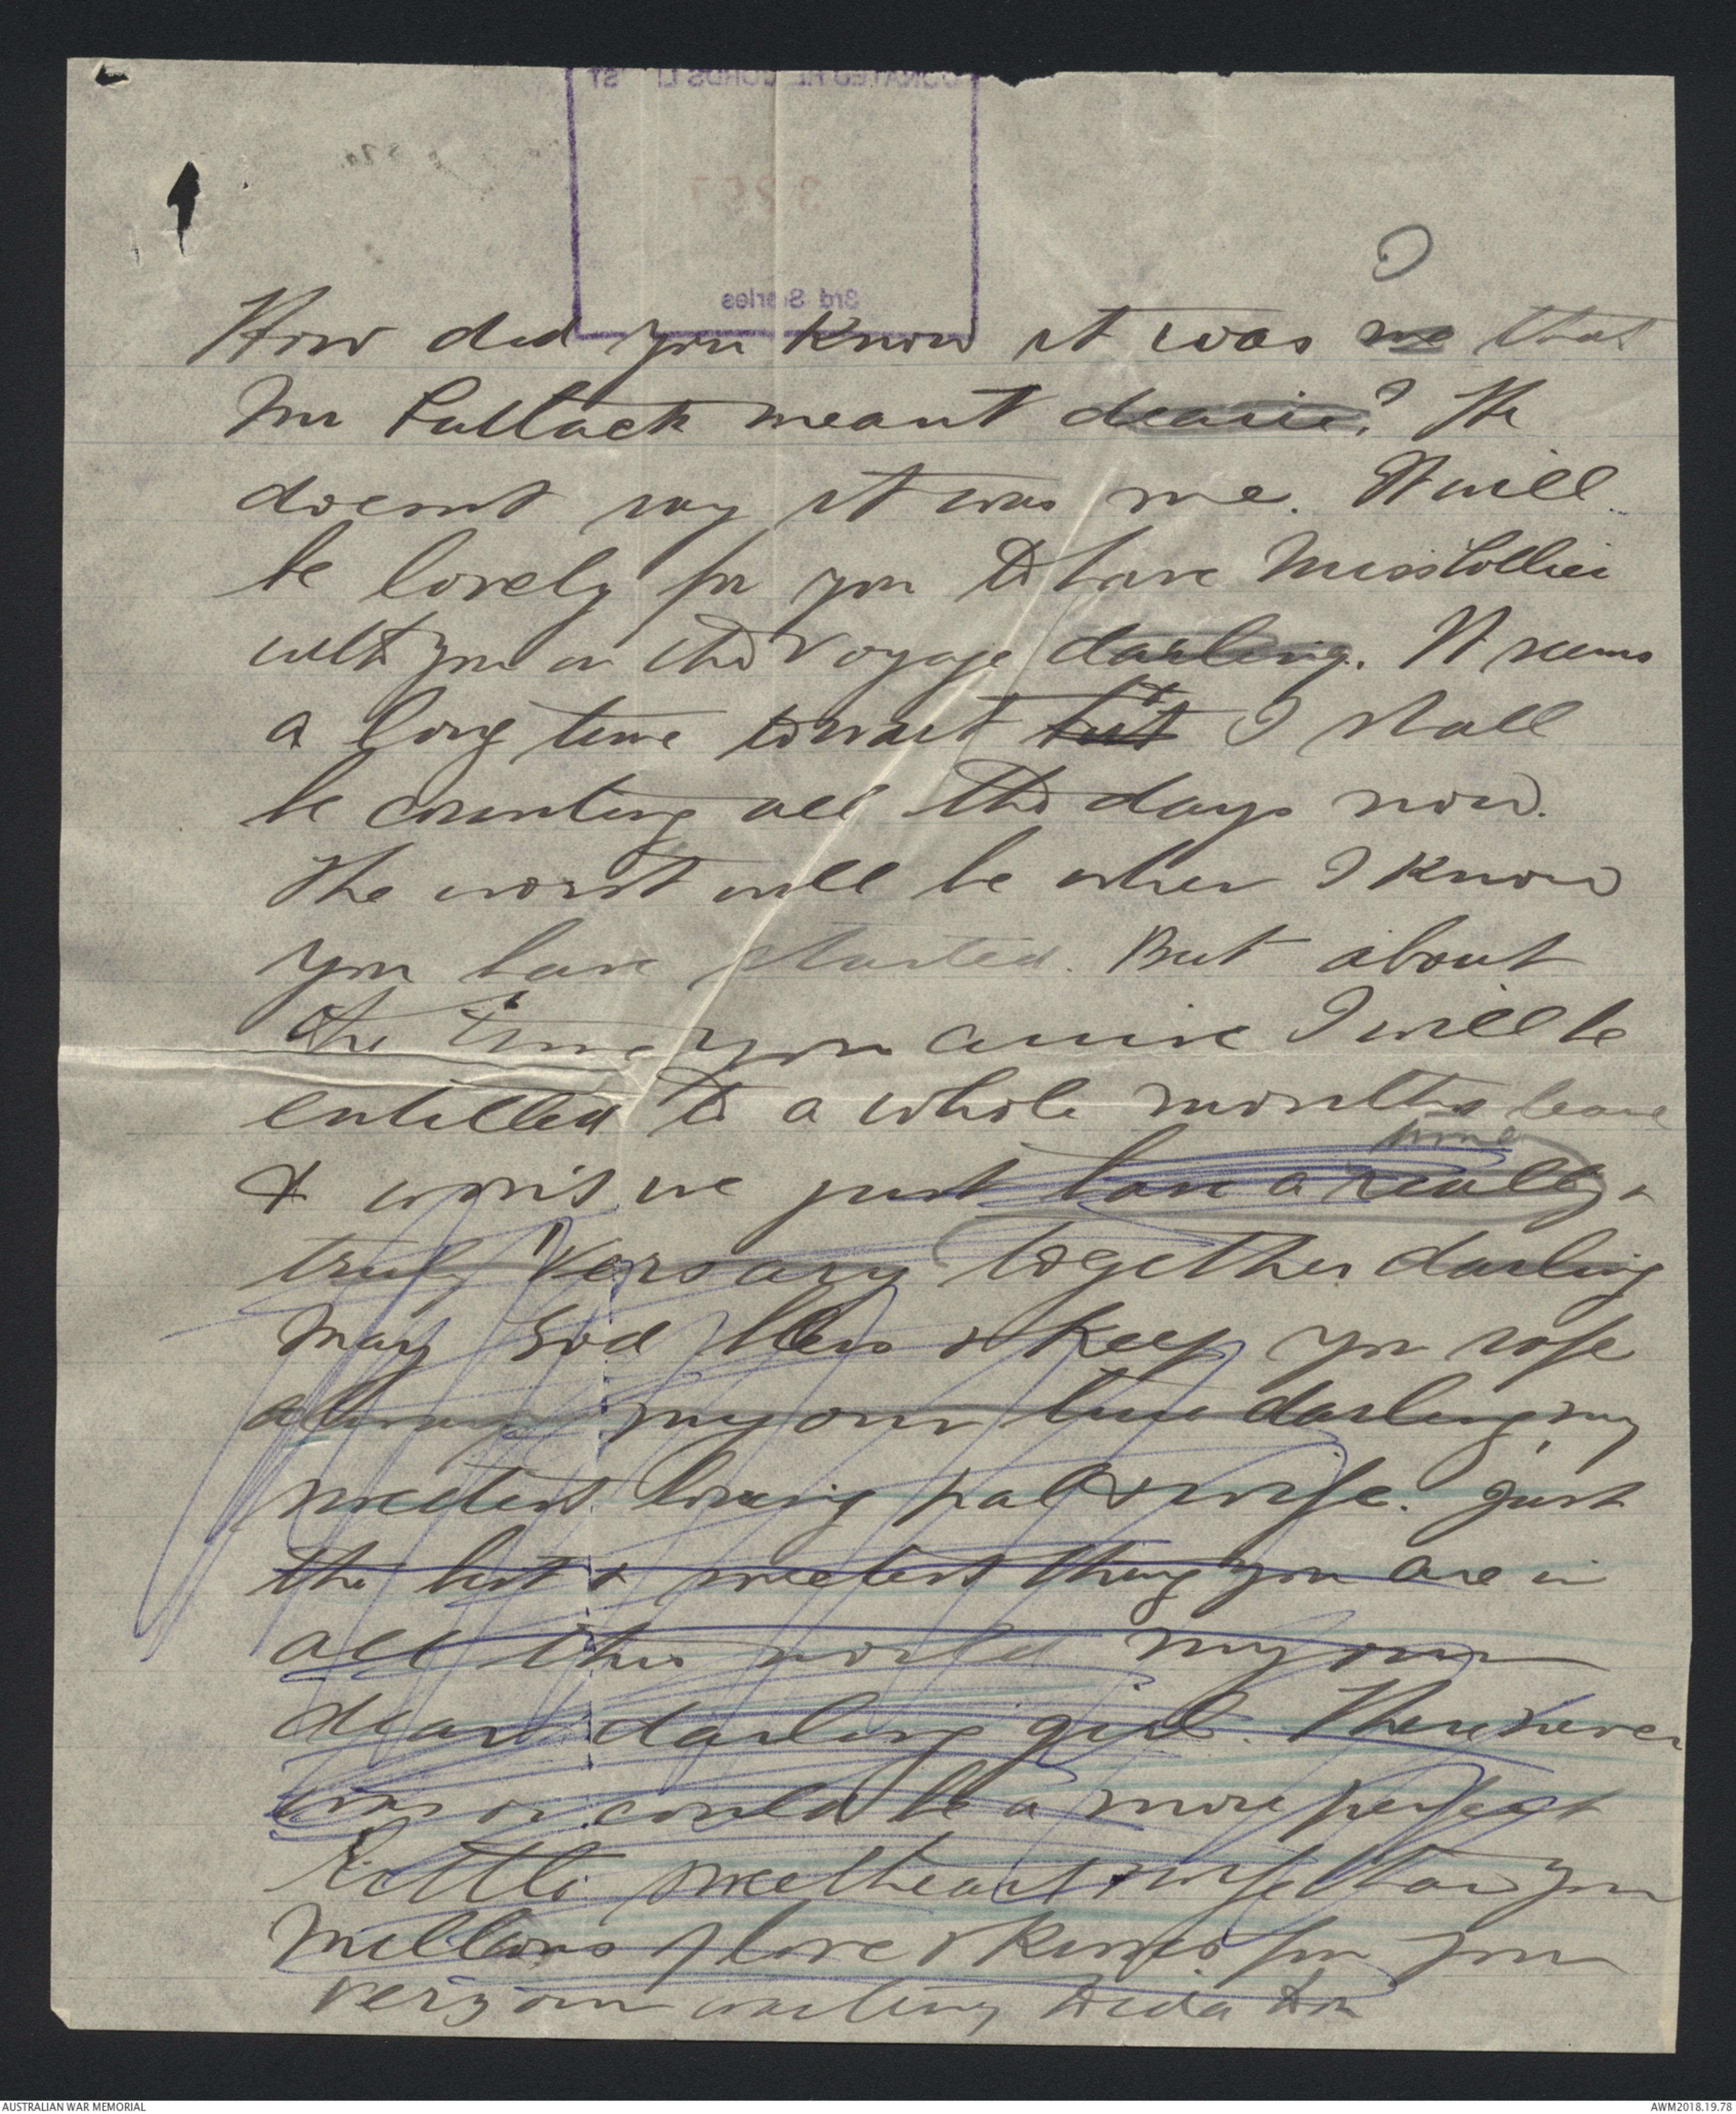 How did you know it was me that
Mr Pollock meant dearie? He
doesnt say it was me. It will
be lovely for you to have Miss Collier
with you on the voyage darling. It seems
a long time to wait but & I shall
be counting all the days now.
The worst will be when I know
you have started. But about
the time you arrive I will be
entitled to a whole months leave
some
& won't we just have a really &
truly "Versary together darling
May God bless & keep you safe
always my own true darling, my
sweetest loving pal & wife. Just
the best & sweetest thing you are in
all this world my own
dear darling girl. There never
was or could be a more perfect
little sweetheart & wife than you
Millions of love & kisses from your
very own waiting
3rd Series
3267
AUSTRALIAN WAR MEMORIAL
AWM2018.19.78